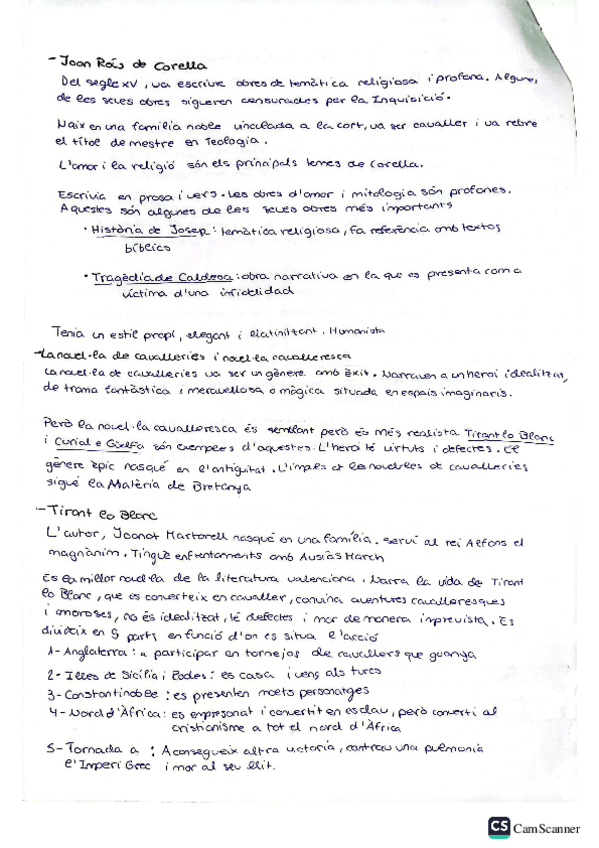 - Joan Roís de Corella
Del segle XV, va escriure obres de temàtica religiosa i profana. Algunes,
de les seues obres sigueren censurades per la Inquisició.
Naix en una família noble vinculada a la cort, va ser cavaller i va rebre
el títol de mestre en Teologia.
L'amor i la religió són els principals temes de Corella.
Escrivia en prosa i vers. Les obres d'amor i mitologia són profanes.
Aquestes són algunes de les seues obres més importants
· Història de Josep: temàtica religiosa, fa referència amb textos
bíblics
· Tragèdia de Caldesa: obra narrativa en la que es presenta com a
víctima d'una infidelidad
Tenia un estil propi, elegant i llatinitzant. Humanista
- La novel·la de cavalleries i novel·la cavalleresca
La novel·la de cavalleries va ser un gènere amb èxit. Narraven a un heroi idealitzat,
de trama fantàstica i meravellosa o màgica situada en espais imaginaris.
Però la novel·la cavalleresca és semblant però és més realista. Tirant lo Blanc
i Curial e Güelfa són exemples d'aquestes. L'heroi té virtuts i defectes. El
gènere èpic nasqué en l'antiguitat. L'impuls de les novel·les de cavalleries
sigué la Matèria de Bretanya
- Tirant lo Blanc
L'autor, Joanot Martorell nasqué en una família. Serví al rei Alfons el
magnànim. Tingué enfrentaments amb Ausiàs March
És la millor novel·la de la literatura valenciana. Narra la vida de Tirant
lo Blanc, que es converteix en cavaller, convina aventures cavalleresques
i amoroses, no és idealitzat, té defectes i mor de manera imprevista. Es
divideix en 5 parts en funció d'on es situa l'acció
1- Anglaterra: a participar en tornejos de cavallers que guanya
2- Illes de Sicília i Rodes: es casa i venç als turcs
3- Constantinoble: es presenten molts personatges
4- Nord d'Àfrica: es empresonat i convertit en esclau, però converti al
cristianisme a tot el nord d'Àfrica
5- Tornada a : Aconsegueix altra victoria, contrau una pulmonia
l'Imperi Grec i mor al seu llit.
CS CamScanner